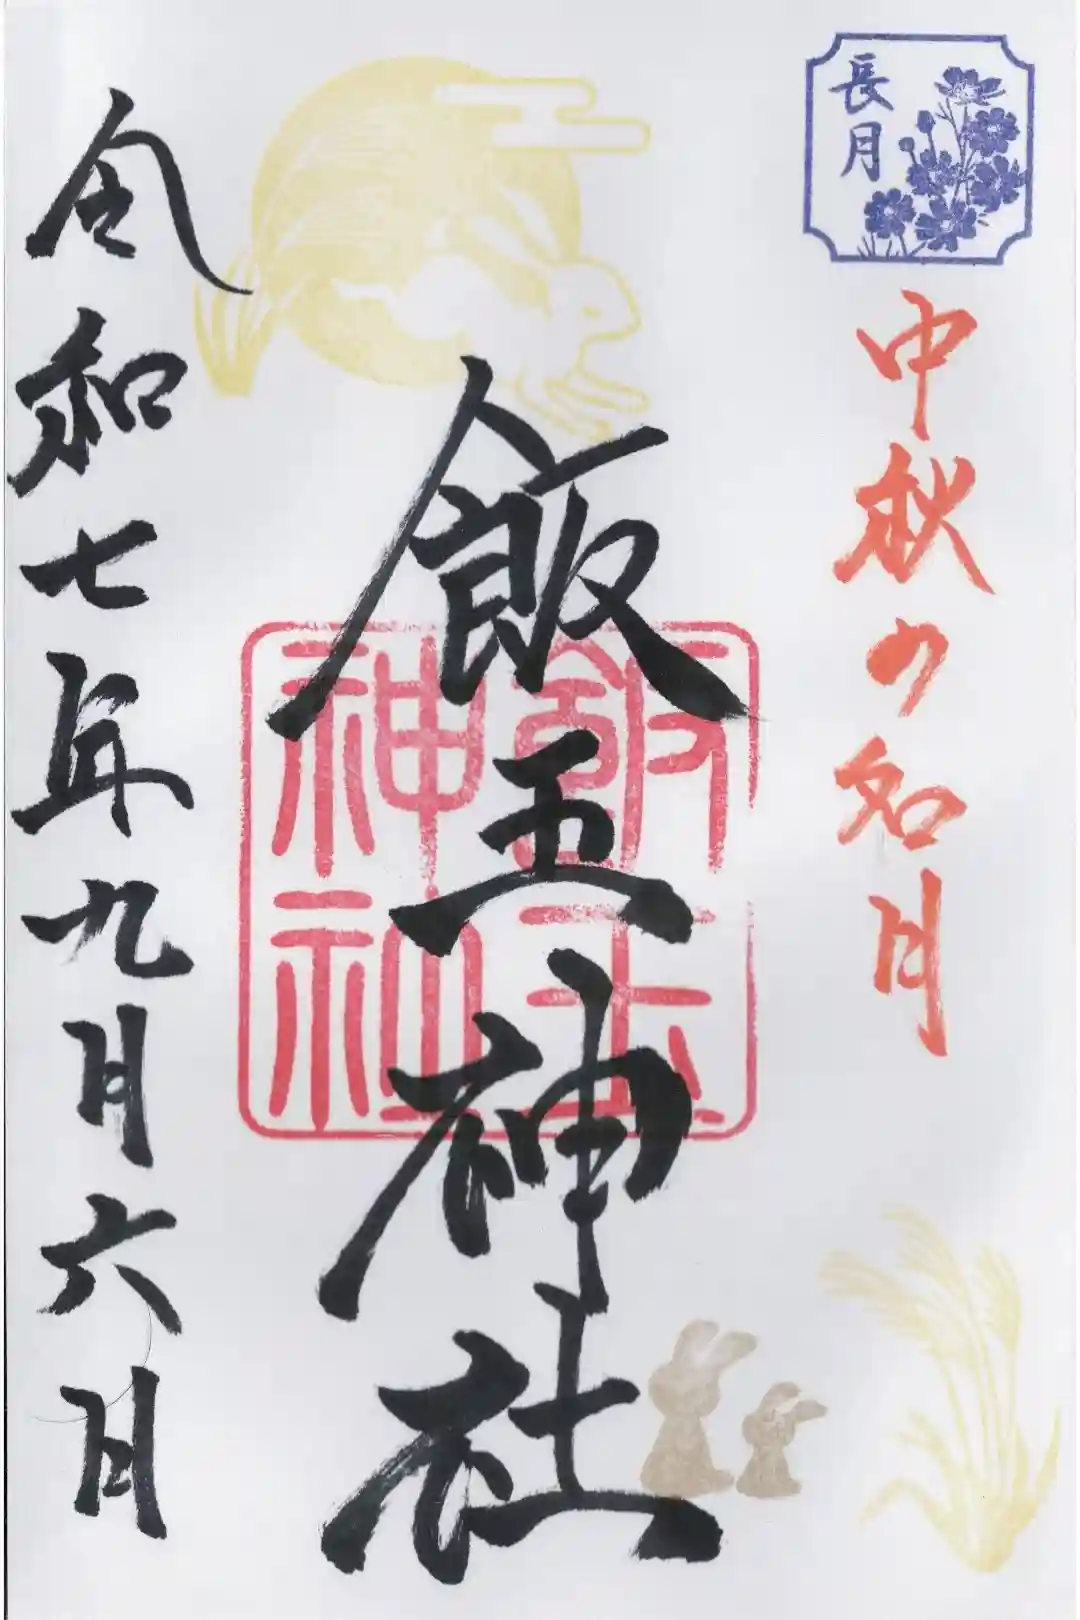 長月
中秋の名月
飯玉神社
飯玉
神社
令和七年九月六日